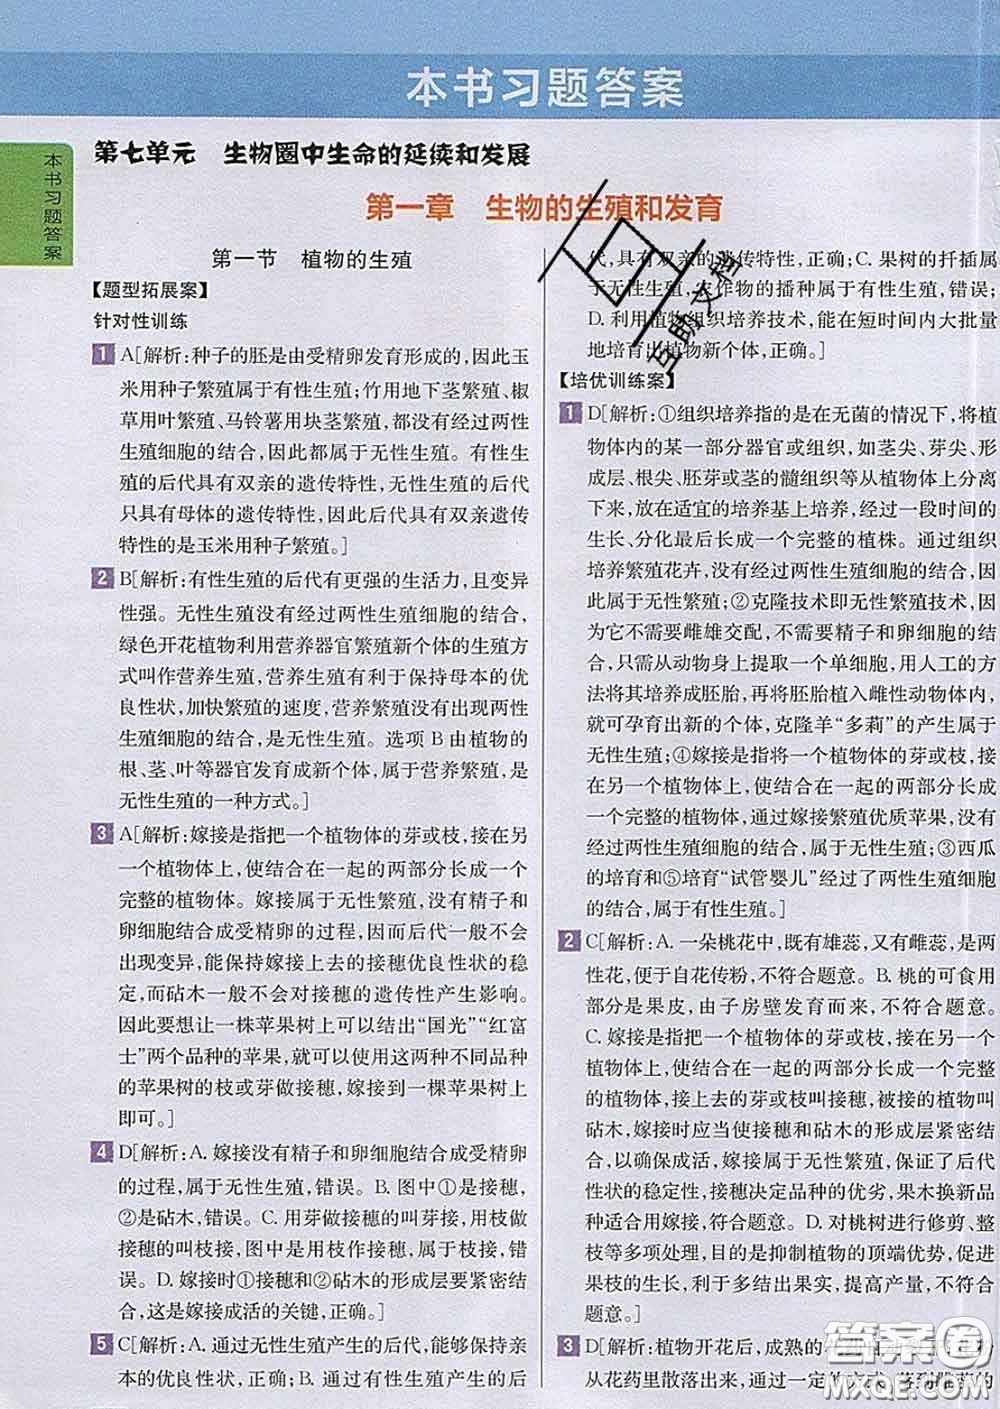 本书习题答案
本书习题答案
第七单元 生物圈中生命的延续和发展
第一章 生物的生殖和发育
第一节 植物的生殖
【题型拓展案】
针对性训练
1 A[解析:种子的胚是由受精卵发育形成的,因此玉
米用种子繁殖属于有性生殖;竹用地下茎繁殖、椒
草用叶繁殖、马铃薯用块茎繁殖,都没有经过两性
生殖细胞的结合,因此都属于无性生殖。有性生
殖的后代具有双亲的遗传特性,无性生殖的后代
只具有母体的遗传特性,因此后代具有双亲遗传
特性的是玉米用种子繁殖。]
2 B[解析:有性生殖的后代有更强的生活力,且变异
性强。无性生殖没有经过两性生殖细胞的结合,
绿色开花植物利用营养器官繁殖新个体的生殖方
式叫作营养生殖,营养生殖有利于保持母本的优
良性状,加快繁殖的速度,营养繁殖没有出现两性
生殖细胞的结合,是无性生殖。选项 B 由植物的
根、茎、叶等器官发育成新个体,属于营养繁殖,是
无性生殖的一种方式。]
3 A[解析:嫁接是指把一个植物体的芽或枝,接在另
一个植物体上,使结合在一起的两部分长成一个
完整的植物体。嫁接属于无性繁殖,没有精子和
卵细胞结合成受精卵的过程,因而后代一般不会
出现变异,能保持嫁接上去的接穗优良性状的稳
定,而砧木一般不会对接穗的遗传性产生影响。
因此要想让一株苹果树上可以结出“国光”“红富
士”两个品种的苹果,就可以使用两种不同品种
的苹果树的枝或芽做接穗,嫁接到一棵苹果树上
即可。]
4 D[解析:A. 嫁接没有精子和卵细胞结合成受精卵
的过程,属于无性生殖,错误。B. 图中①是接穗,
②是砧木,错误。C. 用芽做接穗的叫芽接,用枝做
接穗的叫枝接,图中是用枝作接穗,属于枝接,错
误。D. 嫁接时①接穗和②砧木的形成层要紧密结
合,这是嫁接成活的关键,正确。]
5 C[解析:A. 通过无性生殖产生的后代,能够保持亲
本的优良性状,正确;B. 通过有性生殖产生的后
代,具有双亲的遗传特性,正确;C. 果树的扦插属
于无性生殖,农作物的播种属于有性生殖,错误;
D. 利用植物组织培养技术,能在短时间内大批量
地培育出植物新个体,正确。]
【培优训练案】
1 D[解析:①组织培养指的是在无菌的情况下,将植
物体内的某一部分器官或组织,如茎尖、芽尖、形
成层、根尖、胚芽或茎的髓组织等从植物体上分离
下来,放在适宜的培养基上培养,经过一段时间的
生长、分化最后长成一个完整的植株。通过组织
培养繁殖花卉,没有经过两性生殖细胞的结合,因
此属于无性繁殖;②克隆技术即无性繁殖技术,因
为它不需要雌雄交配,不需要精子和卵细胞的结
合,只需从动物身上提取一个单细胞,用人工的方
法将其培养成胚胎,再将胚胎植入雌性动物体内,
就可孕育出新的个体,克隆羊“多莉”的产生属于
无性生殖;④嫁接是指将一个植物体的芽或枝,接
在另一个植物体上,使结合在一起的两部分长成
一个完整的植物体,通过嫁接繁殖优质苹果,没有
经过两性生殖细胞的结合,属于无性生殖;③西瓜
的培育和⑤培育“试管婴儿”经过了两性生殖细胞
的结合,属于有性生殖。]
2 C[解析:A. 一朵桃花中,既有雄蕊,又有雌蕊,是两
性花,便于自花传粉,不符合题意。B. 桃的可食用
部分是果皮,由子房壁发育而来,不符合题意。
C. 嫁接是指把一个植物体的芽或枝,接在另一个
植物体上,使结合在一起的两部分长成一个完整
的植物体,接上去的芽或枝叫接穗,被接的植物叫
砧木,嫁接时应当使接穗和砧木的形成层紧密结
合,以确保成活,嫁接属于无性繁殖,保证了后代
性状的稳定性,接穗决定品种的优劣,果木换新品
种适合用嫁接,符合题意。D. 对桃树进行修剪、整
枝等多项处理,目的是抑制植物的顶端优势,促进
果枝的生长,利于多结出果实,提高产量,不符合
题意。]
3 D[解析:植物开花后,成熟的花
从花药里散落出来,通过一定的方式
互助文档
答案卷
MXQE.COM